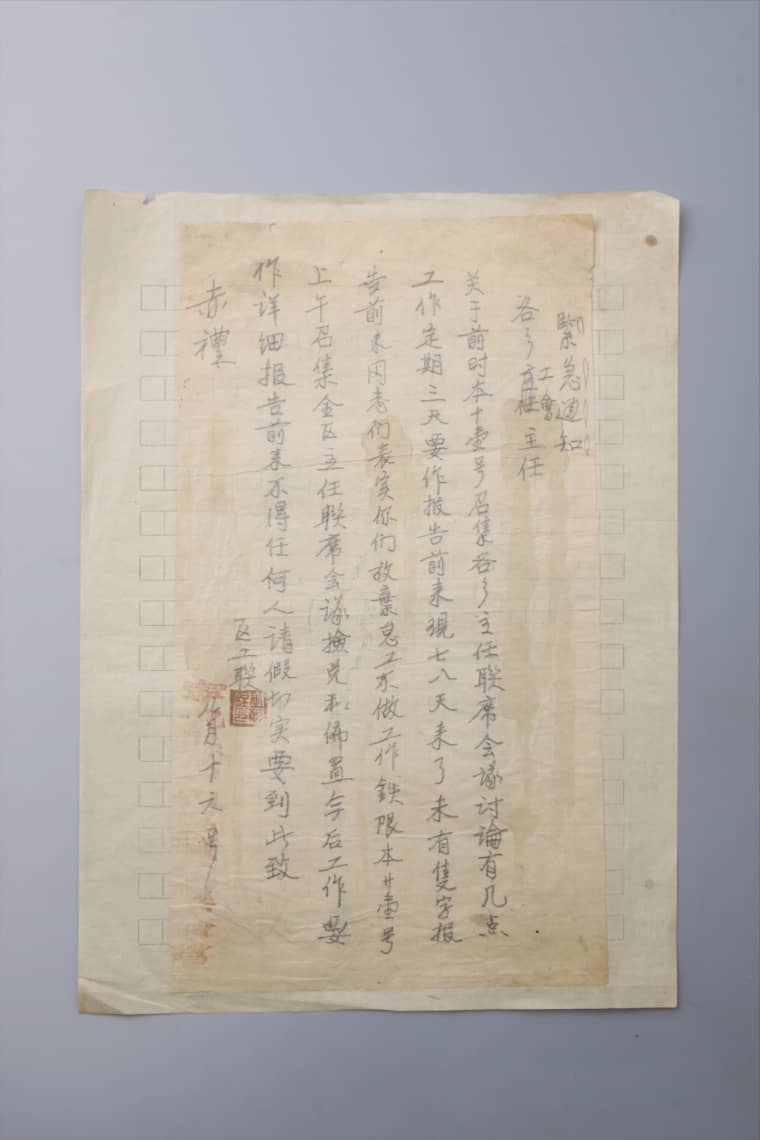 緊急通知
各乡工會主任
关于前时本十壹号召集各乡主任联席会议討論有几点
工作定期三天要作报告前来現七八天来了未有隻字报
告前来同志们表实你们放棄怠工不做工作鉄限本廿壹号
上午召集全区主任联席会议撿兑和佈置今后工作要
作详细报告前来不得任何人請假切实要到此致
赤禮
区工联
月十六号